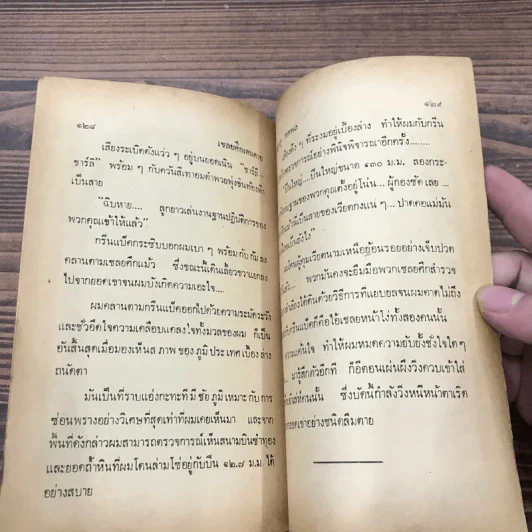 ๑๒๘
เชลยศึกเดนตาย
เสียงระเบิดดังแว่ว ๆ อยู่บนยอดเนิน "ชาร์ลี
ชาร์ลี" พร้อม ๆ กับควันสีเทาอมดำพวยพุ่งขึ้นท้องฟ้า
เป็นสาย
"ฉิบหาย.... ลูกยาวเล่นงานฐานปฏิบัติการของ
พวกคุณเข้าให้แล้ว"
กรีนแบ็คกระซิบบอกผมเบา ๆ พร้อมกับก้มลง
คลานตามเชลยศึกแม้ว ซึ่งขณะนี้เดินเลี้ยวขวาแยกลง
ไปจากยอดเขาจนผมบังเกิดความเอะใจ....
ผมคลานตามกรีนแบ็คออกไปด้วยความระมัดระวัง
และชั่วอึดใจความเคลือบแคลงใจทั้งมวลของผม ก็เป็น
อันสิ้นสุดเมื่อมองเห็นสภาพของภูมิประเทศเบื้องล่าง
ถนัดตา
มันเป็นที่ราบแอ่งกะทะที่มีชัยภูมิเหมาะกับการ
ซ่อนพรางอย่างวิเศษที่สุดเท่าที่ผมเคยเห็นมา และจาก
พื้นที่ดังกล่าวผมสามารถตรวจการณ์เห็นสนามบินซำทอง
และยอดถ้ำหินที่ผมโดนล่ามโซ่อยู่กับปืน ๑๒.๗ ม.ม. ได้
อย่างสบาย
๑๒๙
ๆ ที่ระงมอยู่เบื้องล่าง ทำให้ผมกับกรีน
ตรวจการณ์อย่างพินิจพิจารณาอีกครั้ง........
ปืนใหญ่ขนาด ๑๓๐ ม.ม. สองกระ-
ฐานของพวกคุณตั้งอยู่โน่น... ผู้กองซัดเลย...
เป็นสายของเวียตกงแน่ ๆ... ปาดคอแม่มัน
คุมเวียดนามเหนือย้อนรอยอย่างเจ็บปวด
พวกมันคงจะยืมมือพวกเชลยศึกสำรวจ
ได้ด้วยวิธีการที่แยบยลจนผมคาดไม่ถึง
ก็คือไอ้เชลยหน้าโง่ทั้งสองคนนั้น
ความแค้นใจ ทำให้ผมหมดความยับยั้งชั่งใจใดๆ
มารู้สึกตัวอีกที ก็อีตอนเผ่นผึงวิ่งควบเข้าใส่
คนนั้น ซึ่งบัดนี้กำลังวิ่งหนีหน้าตาเริด
ยอดเขาอย่างชนิดลืมตาย